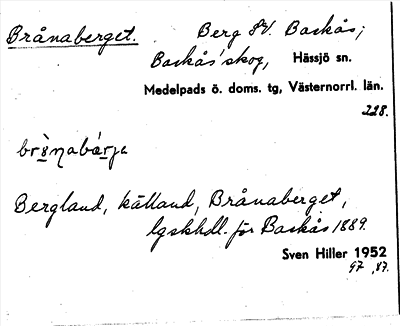 Brånaberget. Berg SV. Baskås;
Baskås' skog, Hässjö sn.
Medelpads ö. doms. tg, Västernorrl. län.
228.
Bergland, kålland, Brånaberget,
lgskhdl. för Baskås 1889.
Sven Hiller 1952
97, 87.